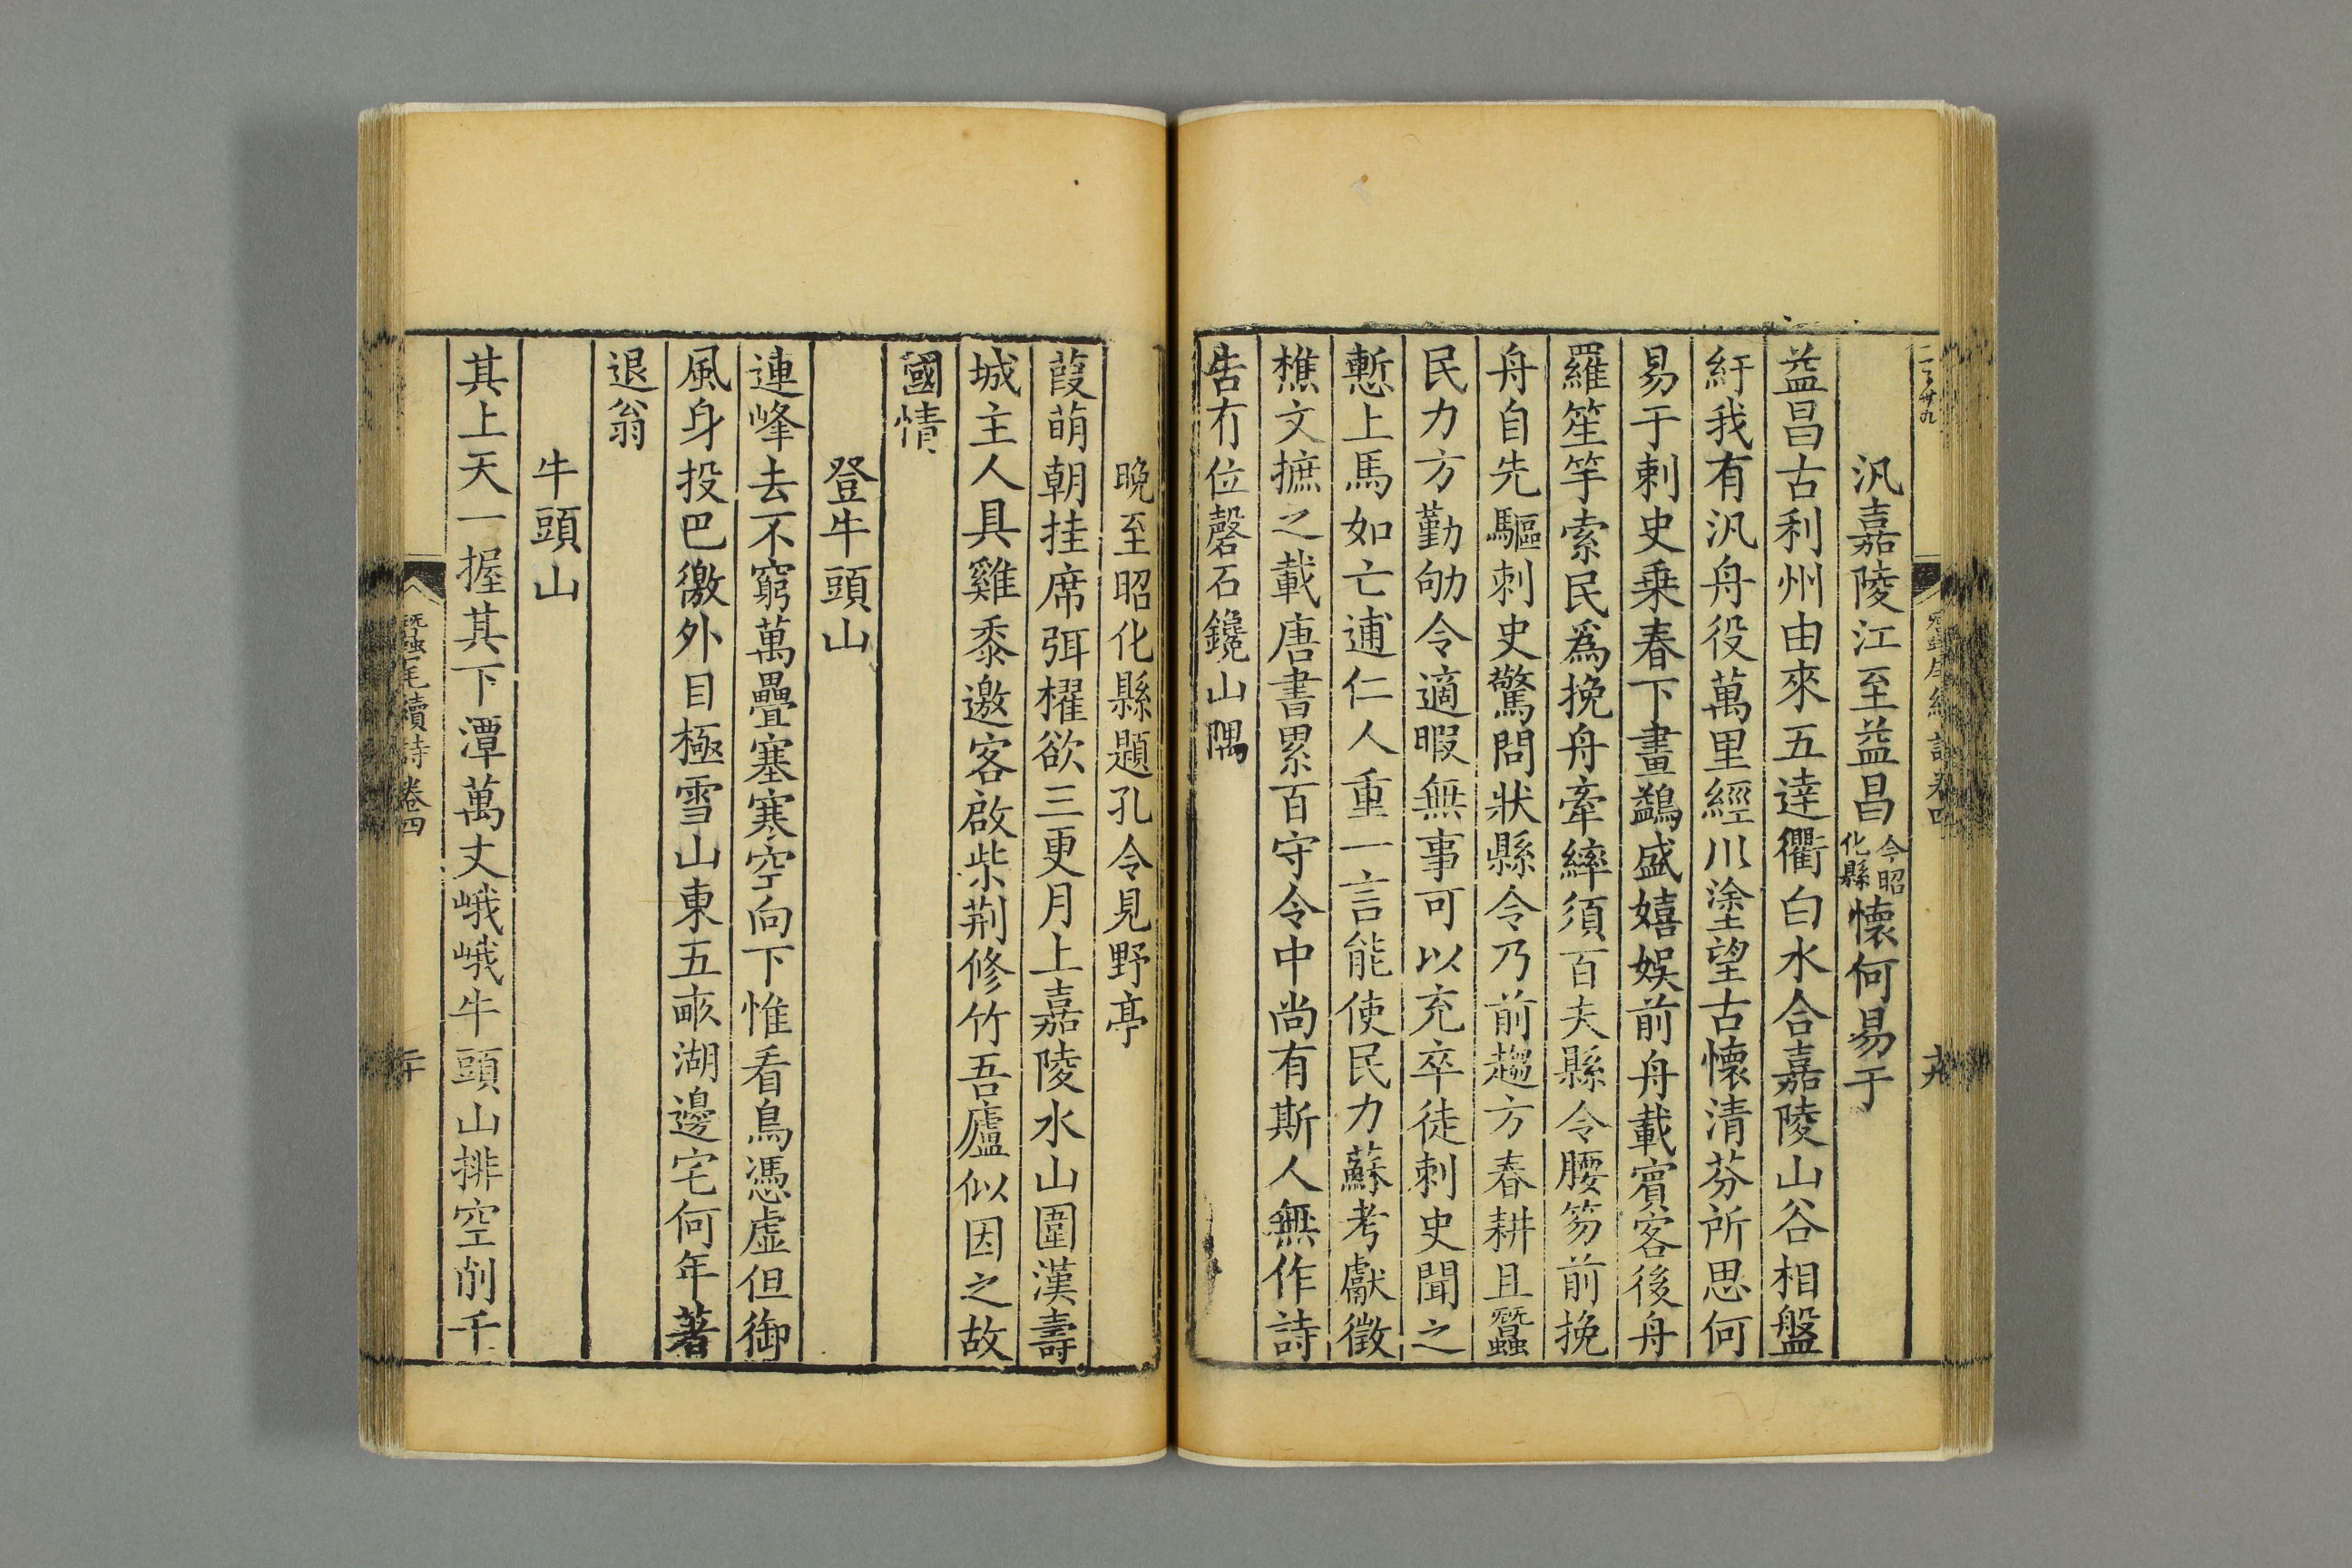 汎嘉陵江至益昌今昭化縣懷何易于
益昌古利州由來五達衢白水合嘉陵山谷相盤
紆我有汎舟役萬里經川塗望古懷清芬所思何
易于刺史乗春下畫鷁盛嬉娛前舟載賓客後舟
羅笙竽索民爲挽舟牽繂須百夫縣令腰笏前挽
舟自先驅刺史驚問狀縣令乃前趨方春耕且蠶
民力方勤劬令適暇無事可以充卒徒刺史聞之
慙上馬如亡逋仁人重一言能使民力蘇考獻徵
樵文摭之載唐書累百守令中尚有斯人無作詩
告冇位磬石鑱山隅
晚至昭化縣題孔令見野亭
葭萌朝挂席弭櫂欲三更月上嘉陵水山圍漢壽
城主人具雞黍邀客啟柴荆修竹吾廬似因之故
國情
登牛頭山
連峰去不窮萬疊塞寒空向下惟看鳥憑虛但御
風身投巴徼外目極雪山東五畝湖邊宅何年著
退翁
牛頭山
其上天一握其下潭萬丈峨峨牛頭山排空削千
蠶尾續詩 卷四